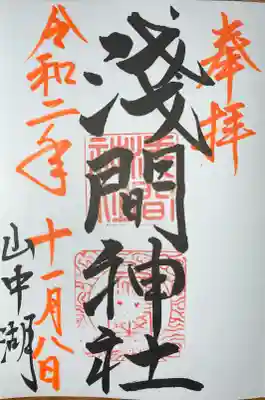 奉拝
淺間神社
令和二年
十一月八日
山中湖